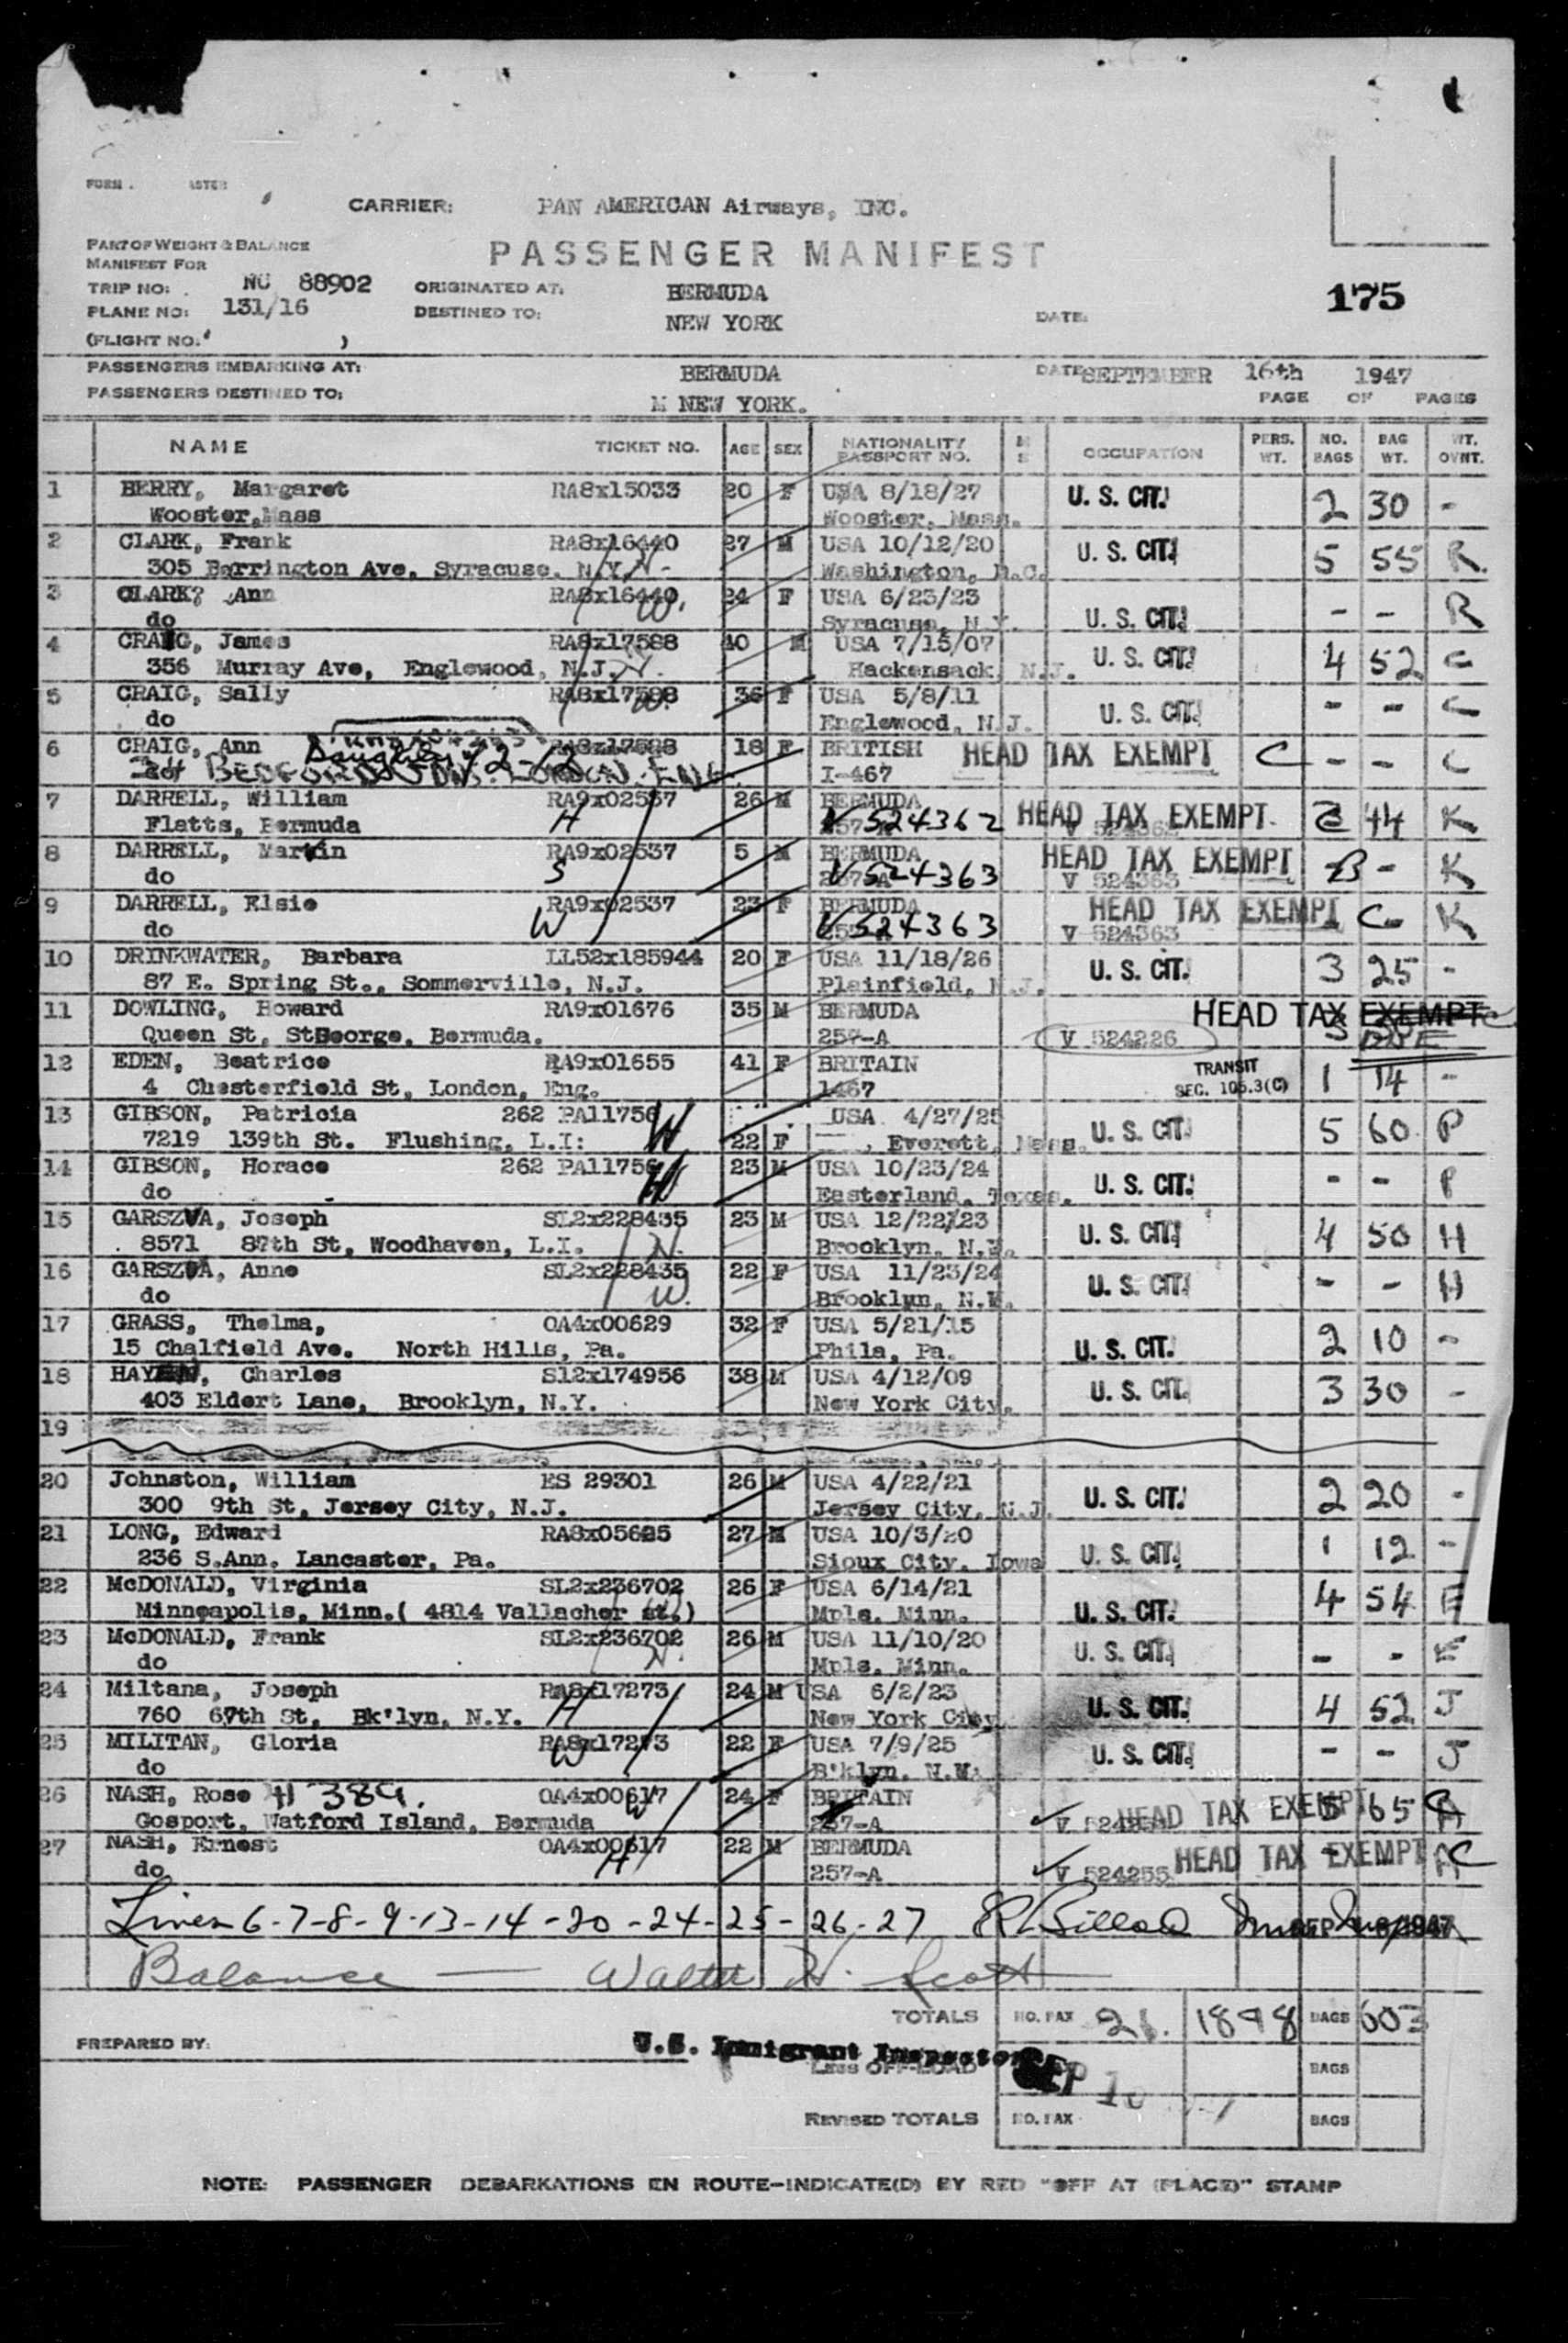 CARRIER: PAN AMERICAN Airways, INC.
PART OF WEIGHT & BALANCE
MANIFEST FOR
PASSENGER MANIFEST
TRIP NO: NC 88902 ORIGINATED AT: BERMUDA 175
PLANE NO: 131/16 DESTINED TO: NEW YORK DATE:
(FLIGHT NO. )
PASSENGERS EMBARKING AT: BERMUDA DATE SEPTEMBER 16th 1947
PASSENGERS DESTINED TO: NEW YORK. PAGE OF PAGES
NAME TICKET NO. AGE SEX NATIONALITY PASSPORT NO. M S OCCUPATION PERS. WT. NO. BAGS BAG WT. WT. OVNT.
1 BERRY, Margaret RA8x15033 20 F USA 8/18/27 U. S. CIT. 2 30 -
Wooster, Mass Wooster, Mass.
2 CLARK, Frank RA8x16440 27 M USA 10/12/20 U. S. CIT. 5 55 R
305 Berrington Ave. Syracuse. N.Y. H. Washington, D.C.
3 CLARK? Ann RA8x16440 24 F USA 6/23/23 U. S. CIT. - - R
do W. Syracuse, N.Y.
4 CRAIG, James RA8x17588 40 M USA 7/15/07 U. S. CIT. 4 52 C
356 Murray Ave, Englewood, N.J. H. Hackensack, N.J.
5 CRAIG, Sally RA8x17588 36 F USA 5/8/11 U. S. CIT. - - C
do W. Englewood, N.J.
6 CRAIG, Ann Daughter RA8x17588 18 F BRITISH HEAD TAX EXEMPT C - - C
I-467
7 DARRELL, William RA9x02537 26 M BERMUDA V 524362 HEAD TAX EXEMPT 44 K
Flatts, Bermuda H
8 DARRELL, Martin RA9x02537 5 M BERMUDA V 524363 HEAD TAX EXEMPT - K
do S V 524363
9 DARRELL, Elsie RA9x02537 23 F BERMUDA V 524363 HEAD TAX EXEMPT K
do W V 524363
10 DRINKWATER, Barbara LL52x185944 20 F USA 11/18/26 U. S. CIT. 3 25 -
87 E. Spring St., Sommerville, N.J. Plainfield, N.J.
11 DOWLING, Howard RA9x01676 35 M BERMUDA HEAD TAX EXEMPT
Queen St, St George, Bermuda. 257-A V 524226
12 EDEN, Beatrice RA9x01655 41 F BRITAIN TRANSIT SEC. 105.3(C) 1 14 -
4 Chesterfield St, London, Eng. 1467
13 GIBSON, Patricia 262 PA11756 W USA 4/27/25 U. S. CIT. 5 60 P
7219 139th St. Flushing, L.I: 22 F Everett, Mass.
14 GIBSON, Horace 262 PA11756 H 23 M USA 10/23/24 U. S. CIT. - - P
do Easterland, Texas.
15 GARSZVA, Joseph SL2x228435 23 M USA 12/22/23 U. S. CIT. 4 50 H
8571 87th St, Woodhaven, L.I. H. Brooklyn, N.Y.
16 GARSZVA, Anne SL2x228435 22 F USA 11/23/24 U. S. CIT. - - H
do W. Brooklyn, N.Y.
17 GRASS, Thelma, OA4x00629 32 F USA 5/21/15 U. S. CIT. 2 10 -
15 Chalfield Ave. North Hills, Pa. Phila, Pa.
18 Charles S12x174956 38 M USA 4/12/09 U. S. CIT. 3 30 -
403 Eldert Lane, Brooklyn, N.Y. New York City.
19
20 Johnston, William ES 29301 26 M USA 4/22/21 U. S. CIT. 2 20 -
300 9th St, Jersey City, N.J. Jersey City, N.J.
21 LONG, Edward 27 M USA 10/3/20 U. S. CIT. 1 12 -
236 S.Ann. Lancaster, Pa. Sioux City, Iowa
22 McDONALD, Virginia SL2x236702 26 F USA 6/14/21 U. S. CIT. 4 54 E
Minneapolis, Minn.( 4814 Vallacher St.) Mpls. Minn.
23 McDONALD, Frank SL2x236702 26 M USA 11/10/20 U. S. CIT. - - E
do H. Mpls. Minn.
24 Miltana, Joseph RA8x17273 24 M USA 6/2/23 U. S. CIT. 4 52 J
760 67th St, Bk'lyn, N.Y. H New York City
25 MILITAN, Gloria RA8x17273 22 F USA 7/9/25 U. S. CIT. - - J
do W B'klyn, N.Y.
26 NASH, Rose OA4x00617 24 F BRITAIN HEAD TAX EXEMPT 65
Gosport, Watford Island, Bermuda W 257-A
27 NASH, Ernest OA4x00617 22 M BERMUDA HEAD TAX EXEMPT
do H 257-A V 524255
Lines 6-7-8-9-13-14-20-24-25-26-27
Balance — Walter H. Scott
TOTALS NO. PAX 1898 BAGS 603
PREPARED BY: U.S. Immigrant Inspector
LESS OFF-LOAD SEP BAGS
REVISED TOTALS NO. PAX BAGS
NOTE: PASSENGER DEBARKATIONS EN ROUTE-INDICATE(D) BY RED "OFF AT (PLACE)" STAMP